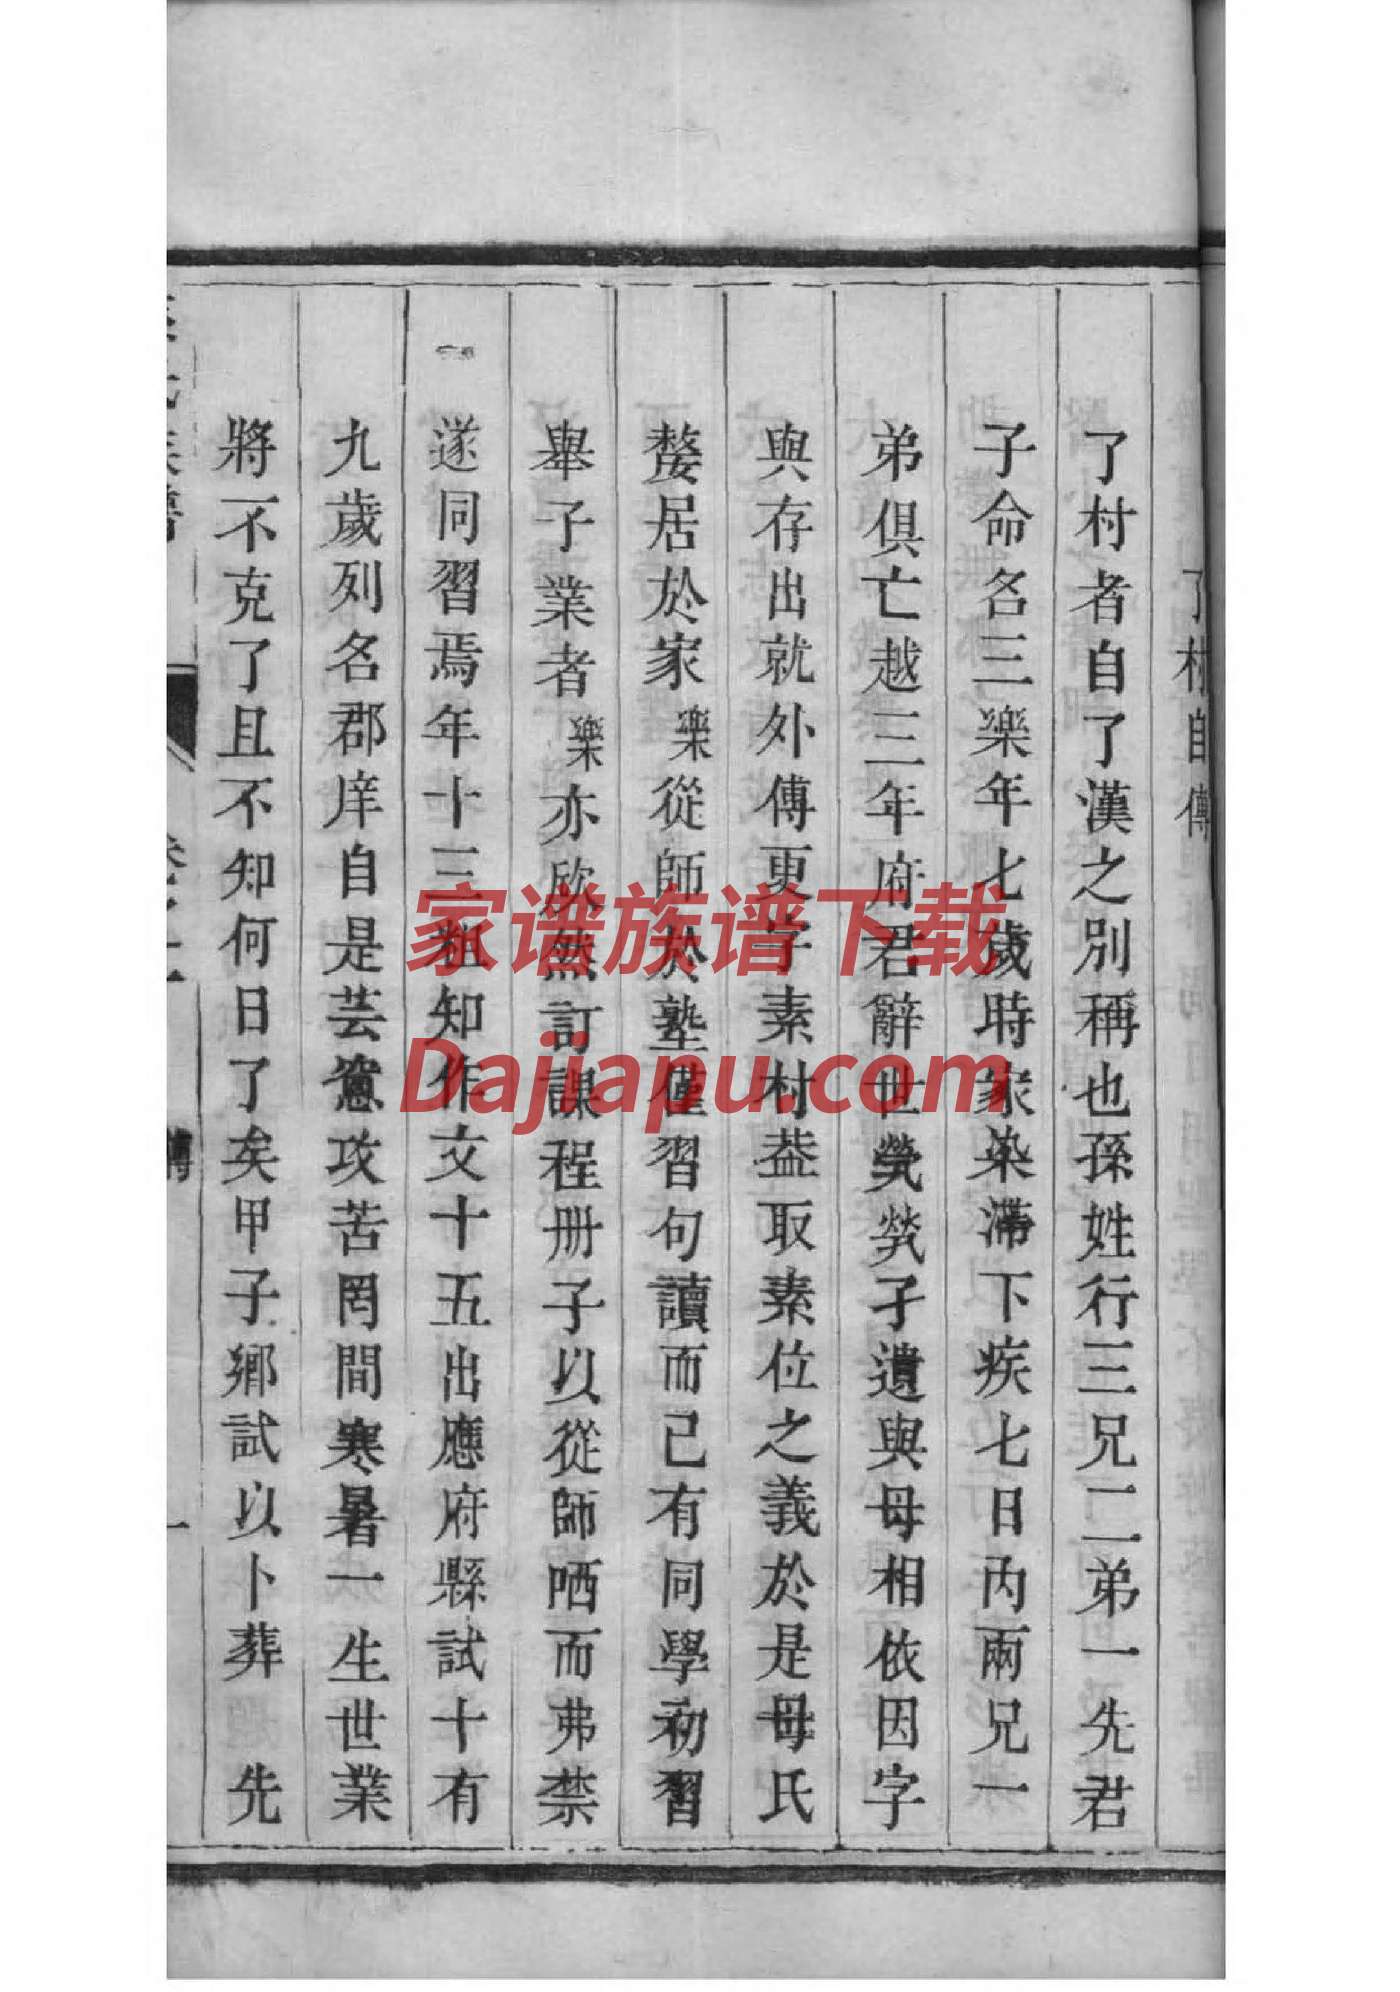 了村自傳
了村者自了漢之別稱也孫姓行三兄二弟一先君
子命名三樂年七歲時家染滯下疾七日內兩兄一
弟俱亡越三年府君辭世煢煢孑遺與母相依因字
與存出就外傅更字素村葢取素位之義於是母氏
嫠居於家樂從師於塾僅習句讀而已有同學初習
舉子業者樂亦欣然訂課程册子以從師哂而弗禁
遂同習焉年十三粗知作文十五出應府縣試十有
九歲列名郡庠自是芸窻攻苦罔間寒暑一生世業
將不克了且不知何日了矣甲子鄉試以卜葬 先
族譜
傳
一
家谱族谱下载
Dajiapu.com